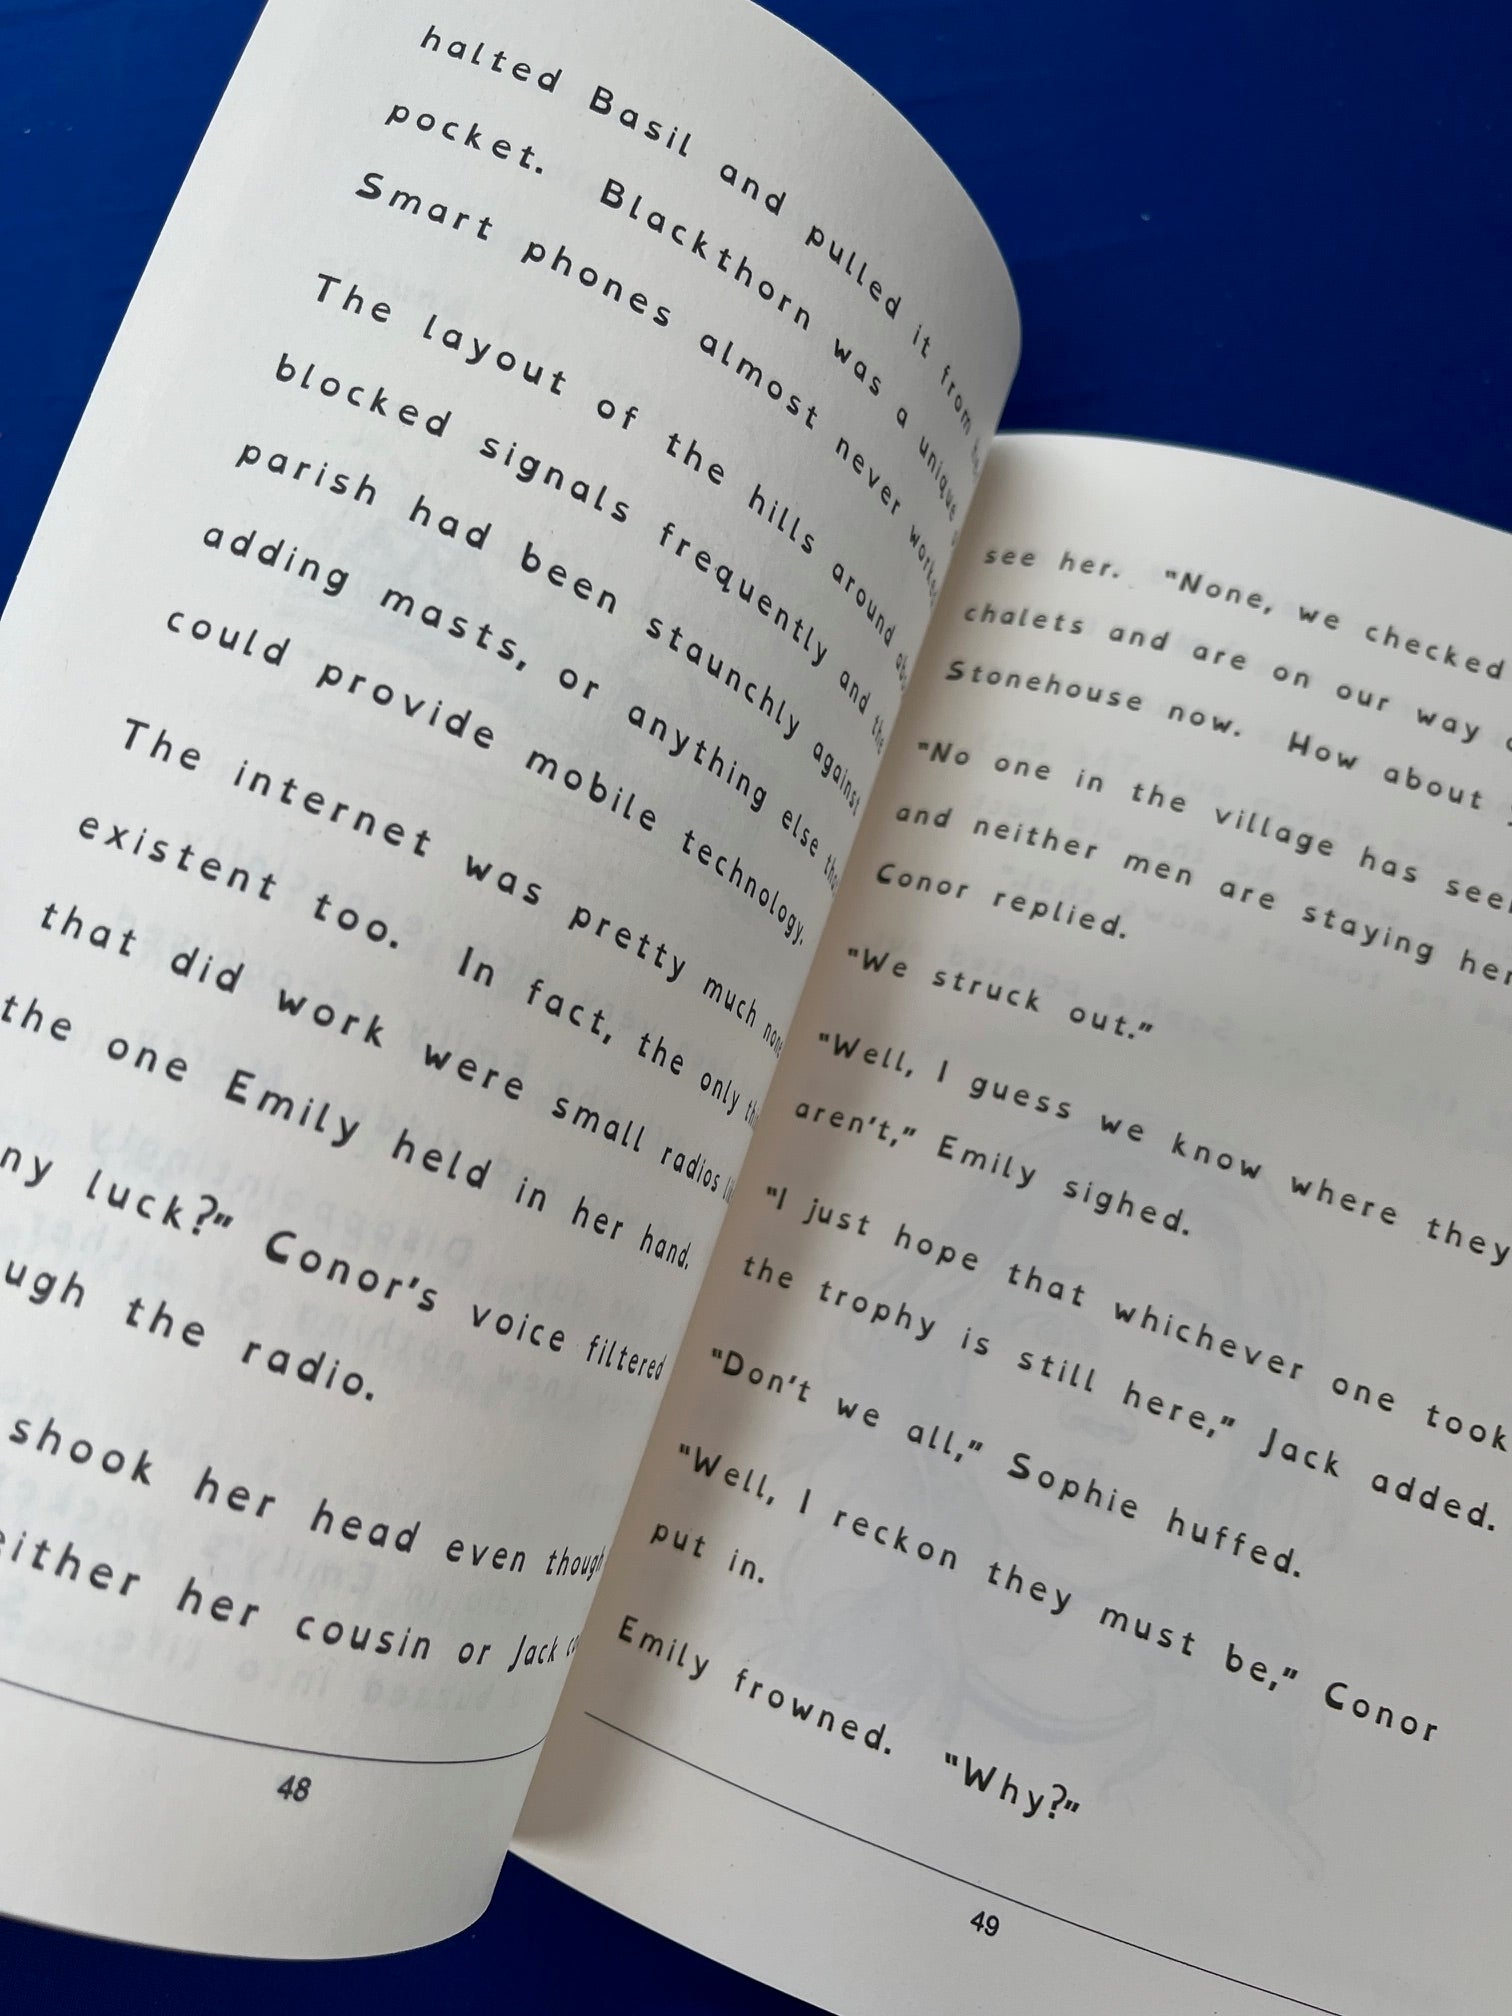 halted Basil and pulled it from
pocket. Blackthorn was a unique
Smart phones almost never worked
The layout of the hills around
blocked signals frequently and the
parish had been staunchly against
adding masts, or anything else
could provide mobile technology.
The internet was pretty much none
existent too. In fact, the only
that did work were small radios
the one Emily held in her hand.
ny luck?" Conor's voice filtered
ugh the radio.
shook her head even though
either her cousin or Jack
48
see her. "None, we checked
chalets and are on our way
Stonehouse now. How about
"No one in the village has seen
and neither men are staying her
Conor replied.
"We struck out."
"Well, I guess we know where they
aren't," Emily sighed.
"I just hope that whichever one took
the trophy is still here," Jack added.
"Don't we all," Sophie huffed.
"Well, I reckon they must be," Conor
put in.
Emily frowned. "Why?"
49